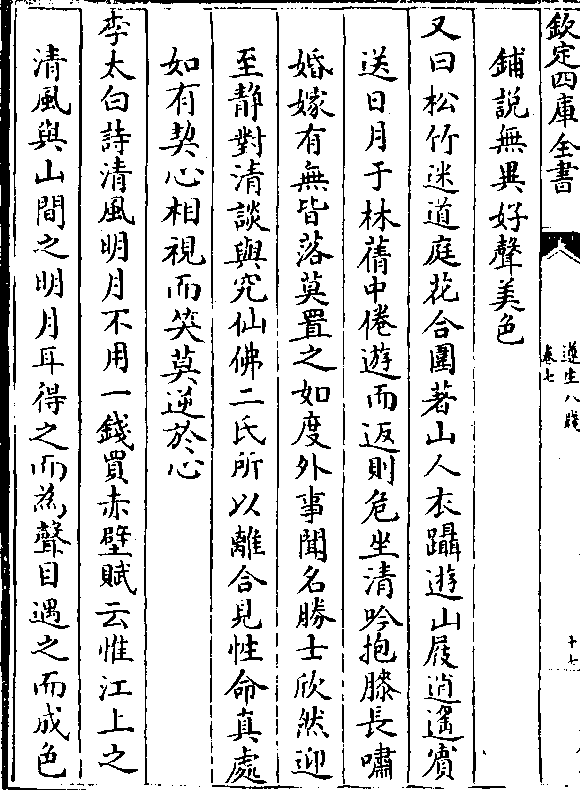 欽定四庫全書
遵生八牋
卷七
十七
鋪説無異好聲美色
又曰松竹迷道庭花合圍著山人衣躡遊山屐逍遥賓
送日月于林蒨中倦遊而返則危坐清吟抱膝長嘯
婚嫁有無皆落莫置之如度外事聞名勝士欣然迎
至静對清談與究仙佛二氏所以離合見性命真處
如有契心相視而笑莫逆於心
李太白詩清風明月不用一錢買赤壁賦云惟江上之
清風與山間之明月耳得之而為聲目遇之而成色